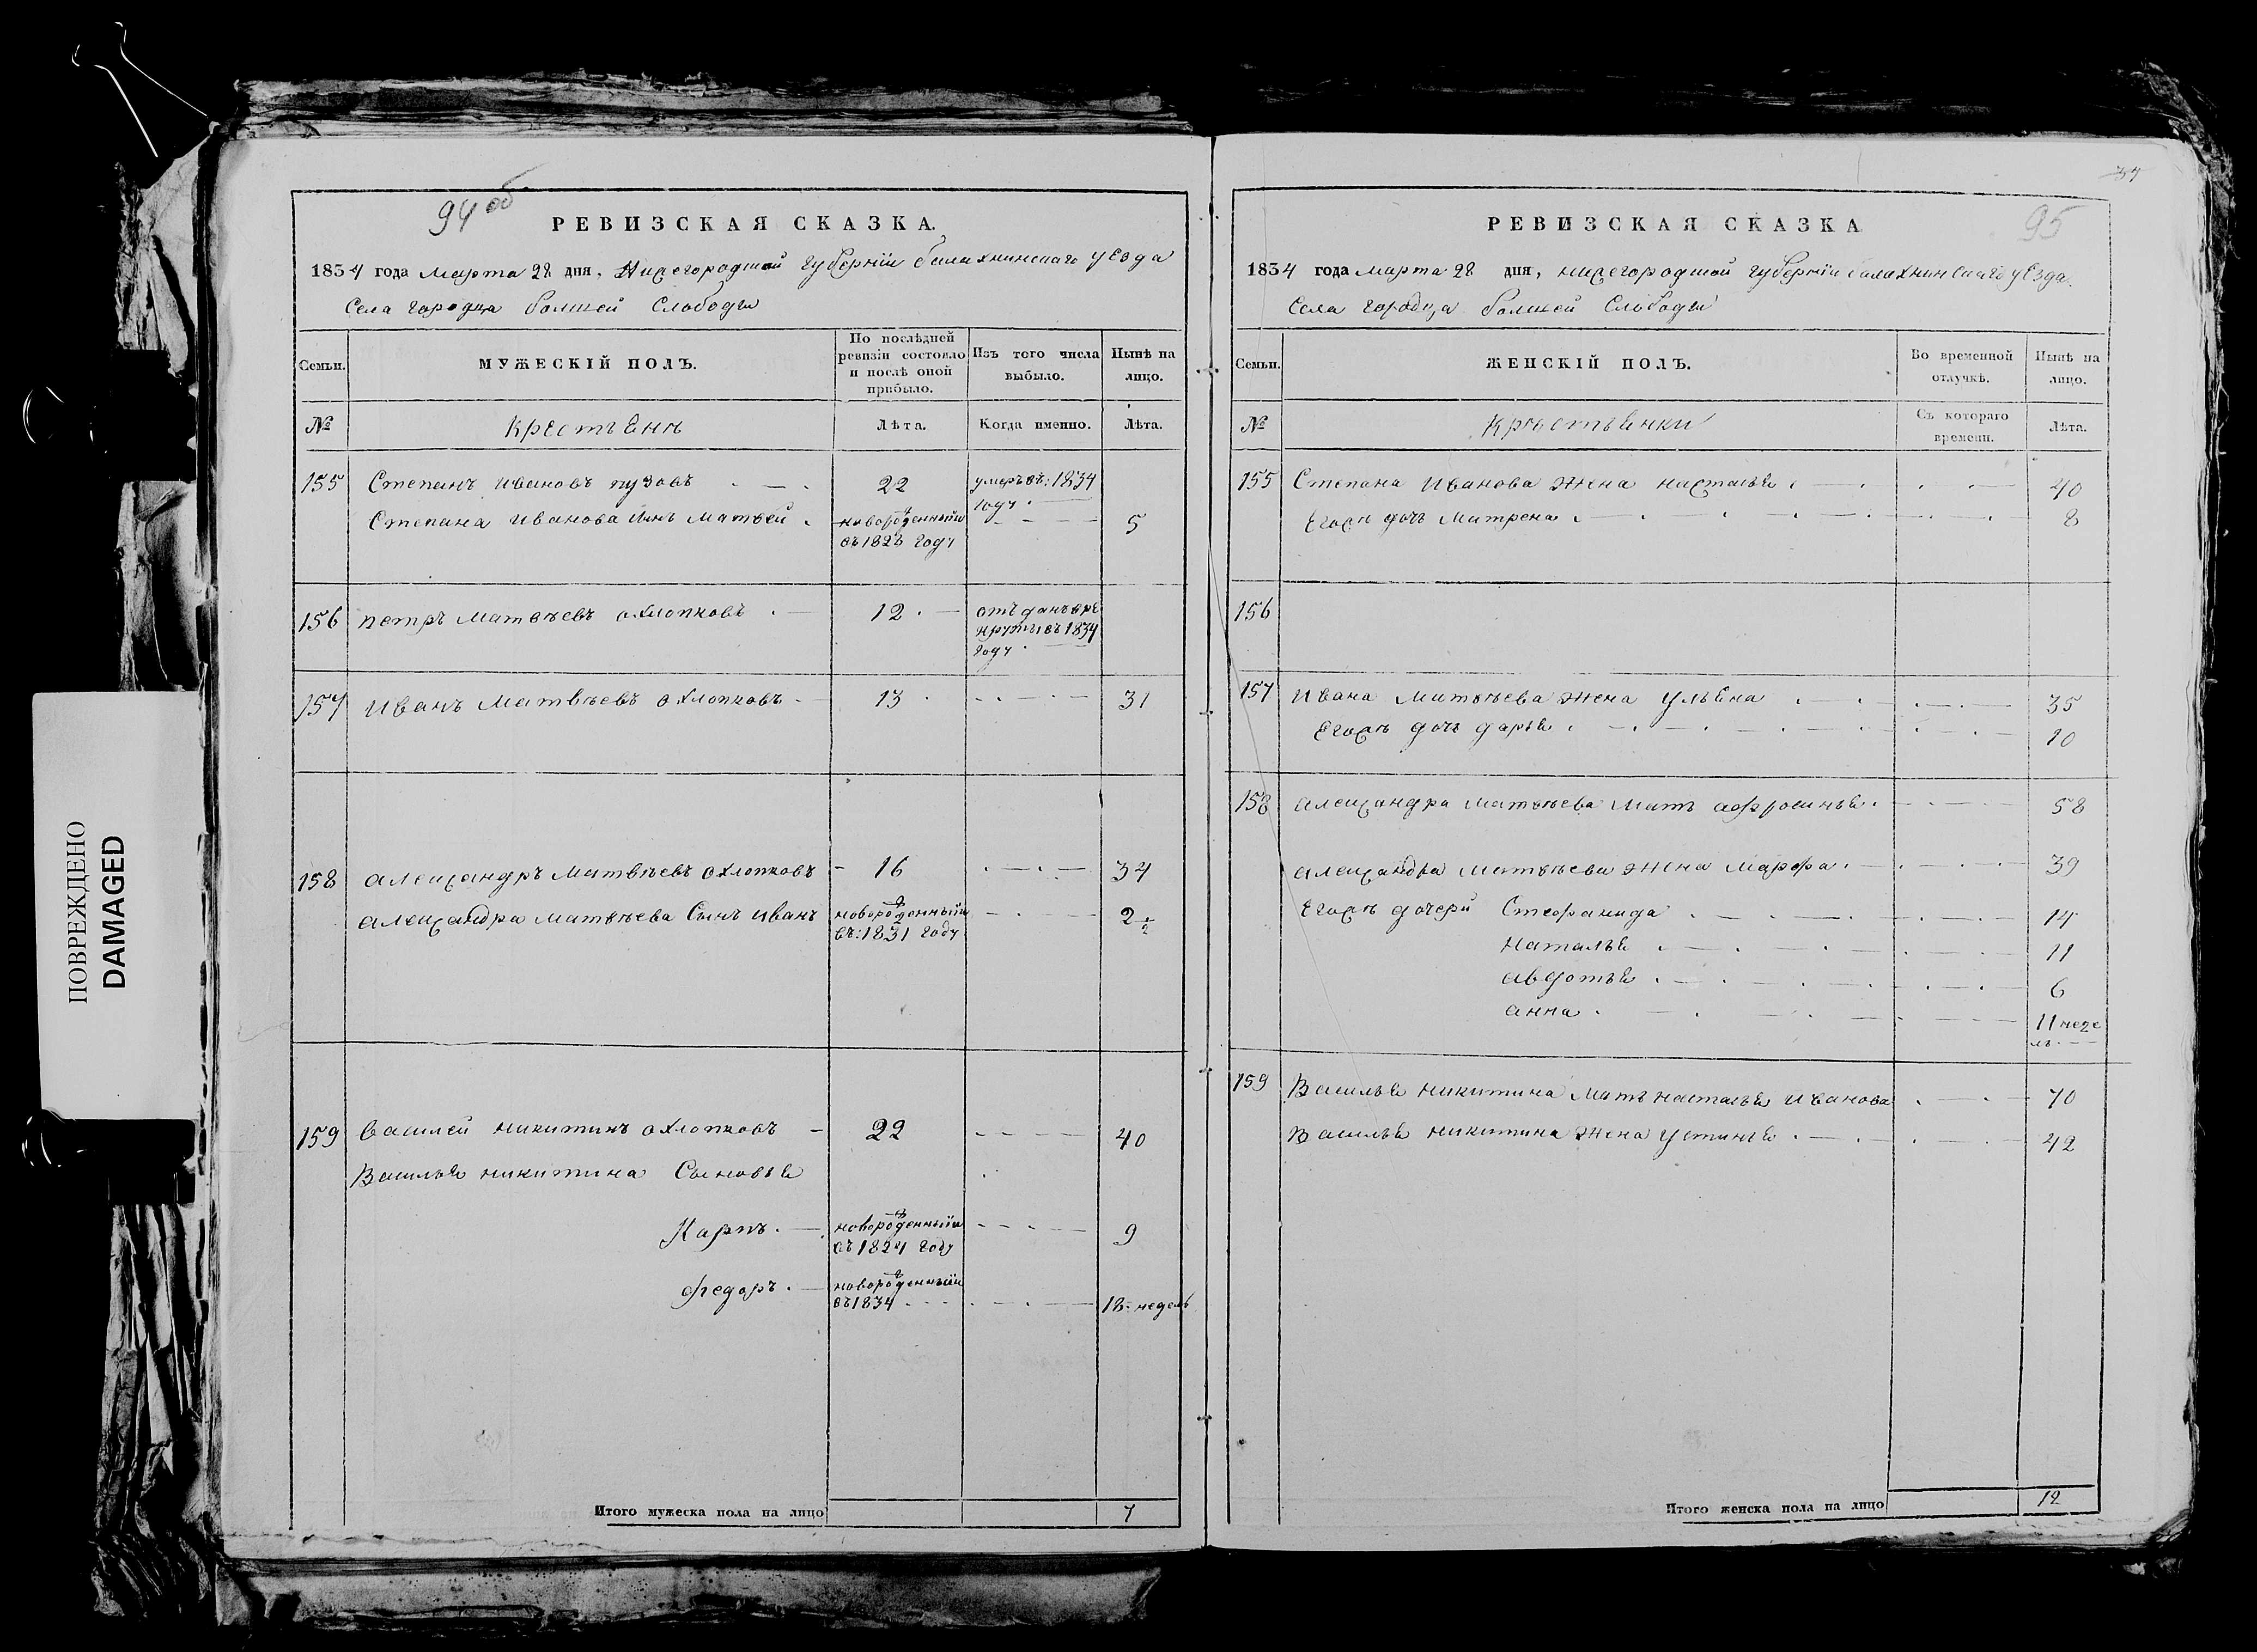 ПОВРЕЖДЕНО
DAMAGED
94 об
РЕВИЗСКАЯ СКАЗКА.
1834 года марта 28 дня, Нижегородской губерніи балахнинскаго уезда
Села городца болшей Слободы
Семьи.
МУЖЕСКІЙ ПОЛЪ.
По послѣдней
ревизіи состояло
и послѣ оной
прибыло.
Изъ того числа
выбыло.
Нынѣ на
лицо.
№
Крестьене
Лѣта.
Когда именно.
Лѣта.
155 Степанъ ивановъ пузовъ 22 умеръ въ: 1834
году
Степана иванова Матвей новорожденный 5
въ 1828 году
156 петръ матвѣевъ охлопковъ 12 отъданъ вре
круты въ 1834
году
157 иванъ Матвѣевъ охлопковъ 13 31
158 александръ матвѣевъ охлопковъ 16 34
александра матвѣева Сынъ иванъ новорожденный 2 1/2
въ: 1831 году
159 василей никитинъ охлопковъ 22 40
Василья никитина Сыновья
Карпъ новорожденный 9
въ 1824 году
федоръ новорожденный
въ 1834 18 недель
Итого мужеска пола на лицо 7
95
РЕВИЗСКАЯ СКАЗКА
1834 года марта 28 дня, нижегородской губерніи балахнинскаго уезда
Села городца болшей Слободы
Семьи.
ЖЕНСКІЙ ПОЛЪ.
Во временной
отлучкѣ.
Нынѣ на
лицо.
№
Крестьенки
Съ котораго
времени.
Лѣта.
155 Степана Иванова жена настасья 40
Егожъ дочь матрена 8
156
157 ивана матвѣева жена ульена 35
Егожъ дочь дарья 10
158 александра матвѣева мать афросинья 58
александра матвѣева жена марфа 39
Егожъ дочери Стефанида 14
наталья 11
авдотья 6
анна 11 неде
ль
159 Василья никитина мать настасья иванова 70
Василья никитина жена устинья 42
Итого женска пола на лицо 12